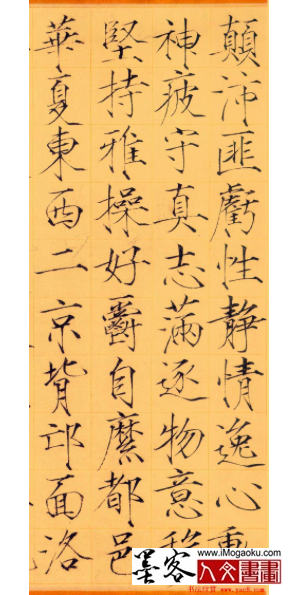 顛沛匪虧性靜情逸心動
神疲守真志滿逐物意移
堅持雅操好爵自縻都邑
華夏東西二京背邙面洛
墨客
www.iMogaoku.com
人文書畫